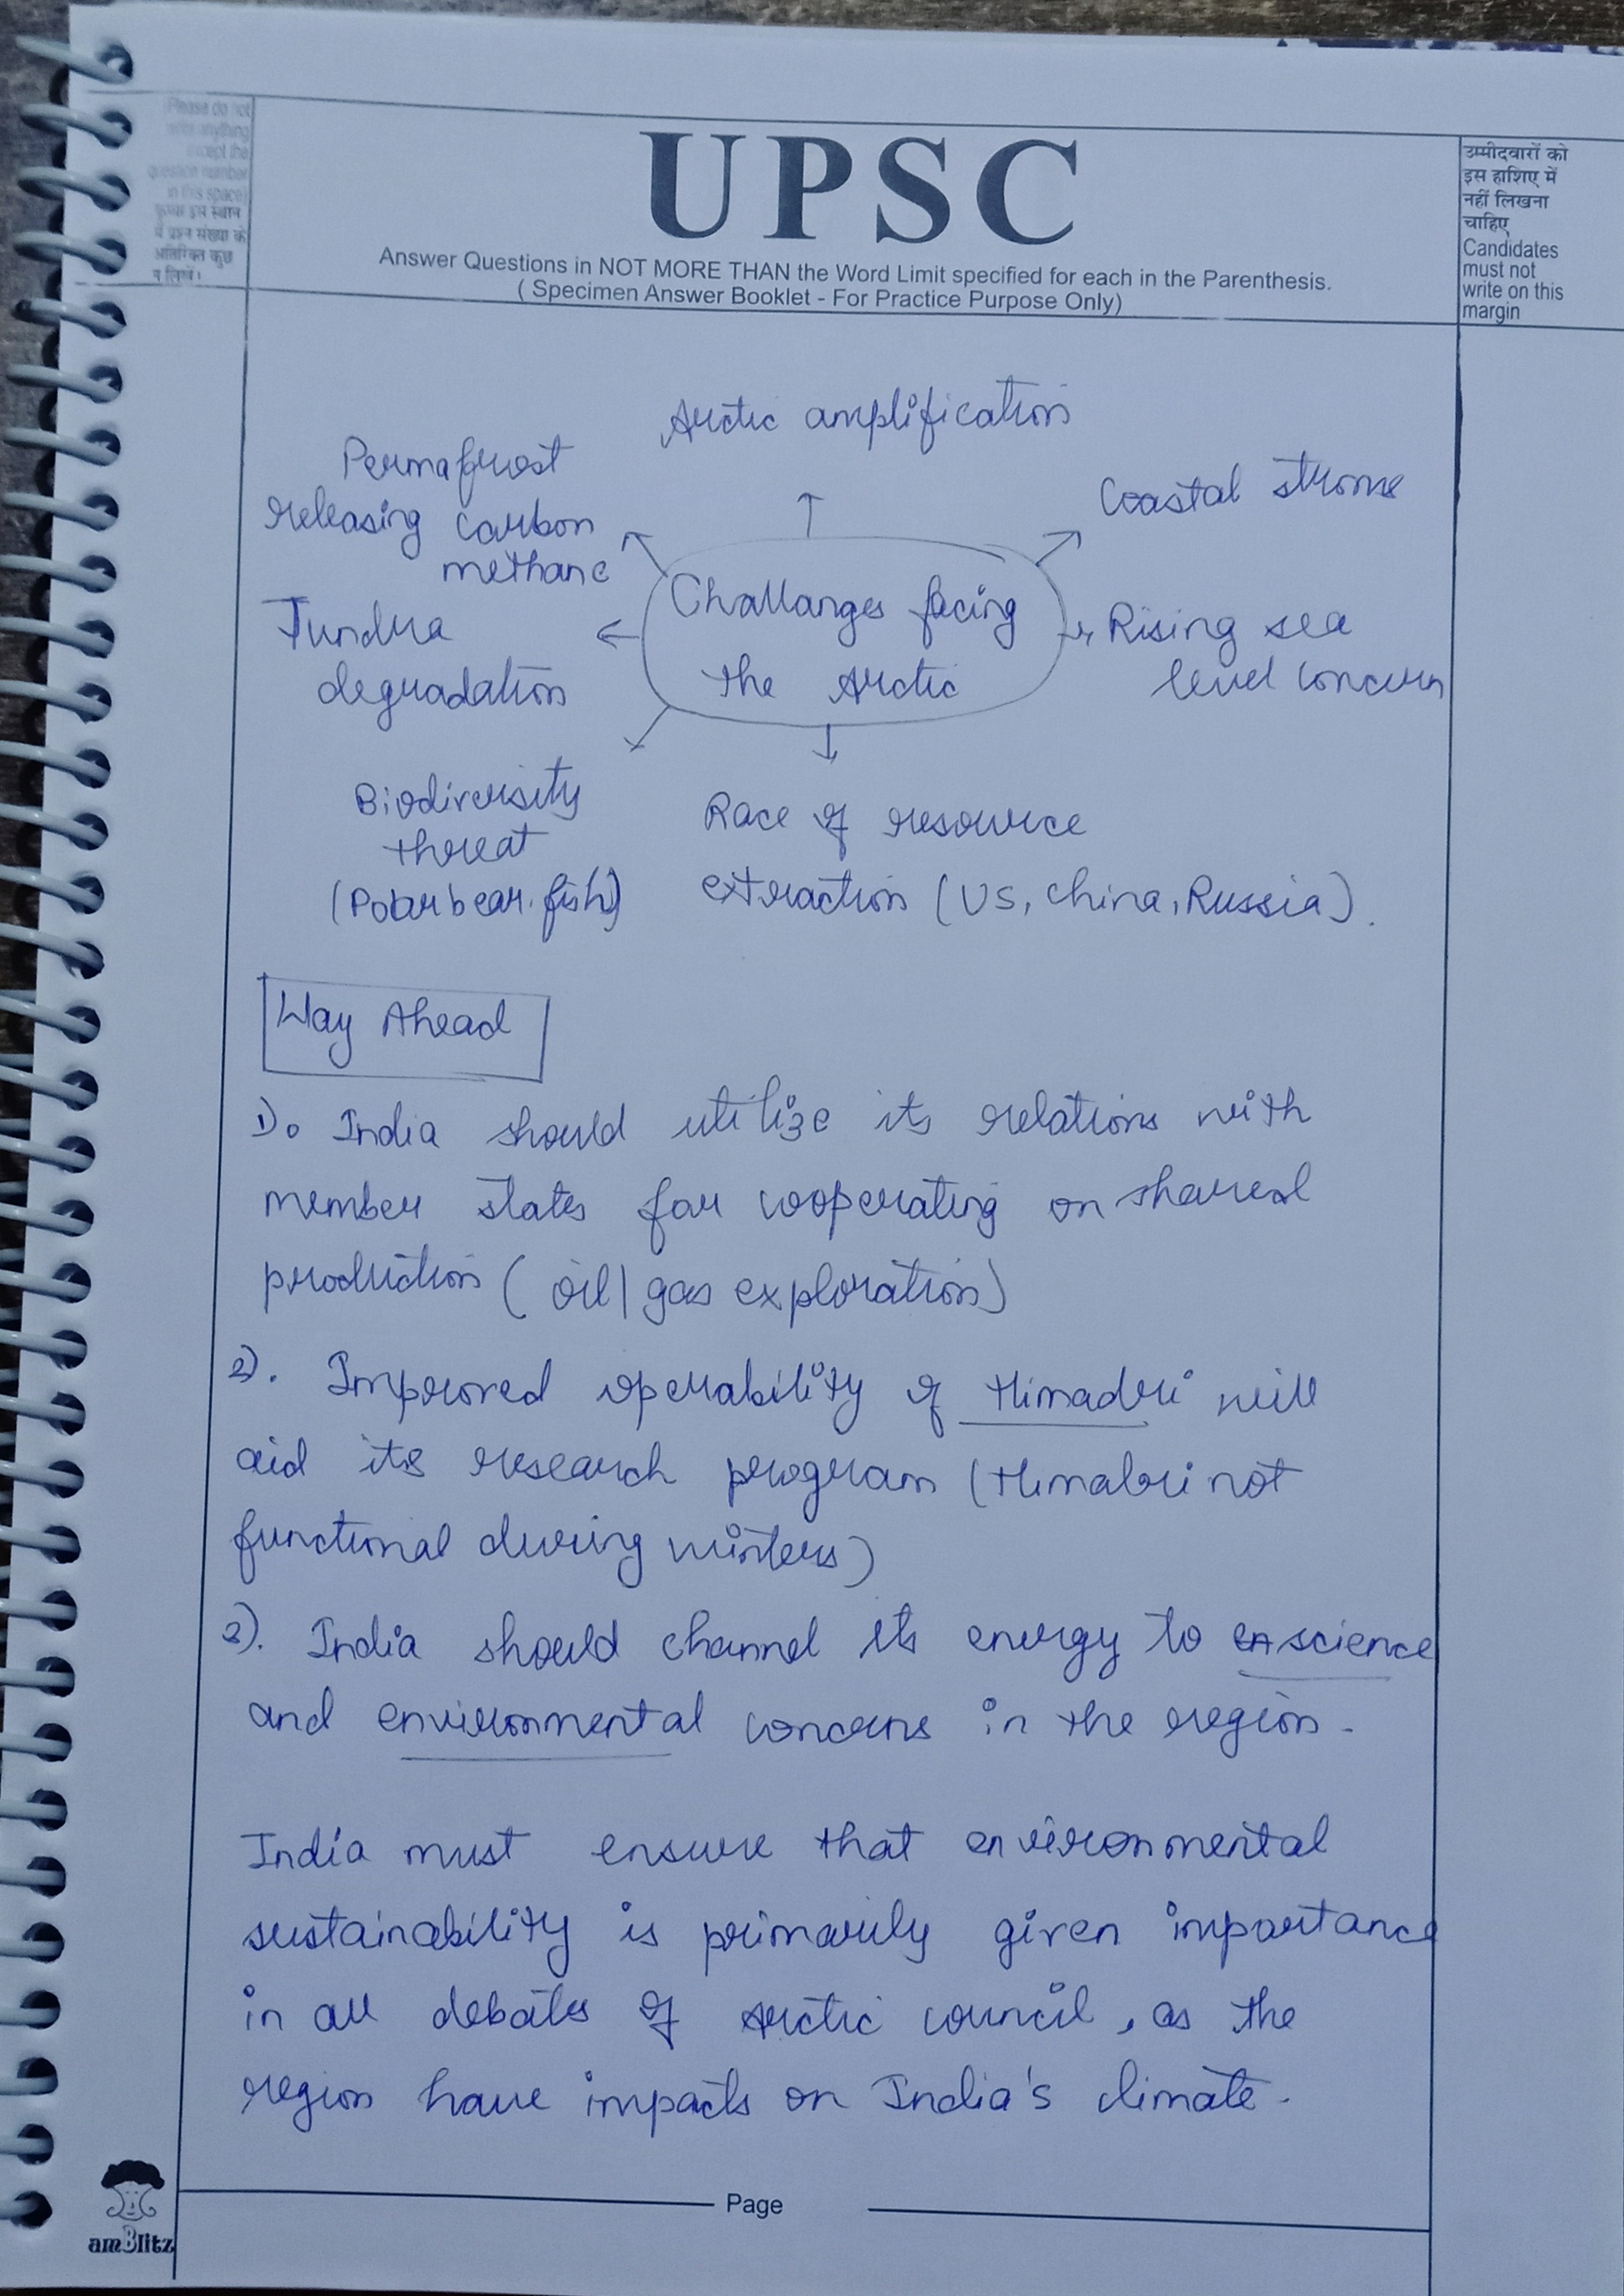 Please do not
write anything
except the
question number
in this space)
कृपया इस स्थान
में प्रश्न संख्या के
अतिरिक्त कुछ
न लिखें।
UPSC
Answer Questions in NOT MORE THAN the Word Limit specified for each in the Parenthesis.
( Specimen Answer Booklet - For Practice Purpose Only)
उम्मीदवारों को
इस हाशिए में
नहीं लिखना
चाहिए
Candidates
must not
write on this
margin
Arctic amplification
Permafrost
releasing carbon
methane
Coastal stroms
Challanges facing
the Arctic
Tundra
degradation
Rising sea
level concern
Biodiversity
threat
(Polar bear, fish)
Race of resource
extraction (US, China, Russia).
Way Ahead
1). India should utilize its relations with
member states for cooperating on shared
production (oil/gas exploration)
2). Improved operability of Himadri will
aid its research program (Himabri not
functional during winters)
3). India should channel its energy to science
and environmental concerns in the region.
India must ensure that environmental
sustainability is primarily given importance
in all debates of Arctic council, as the
region have impacts on India's climate.
Page
amBlitz